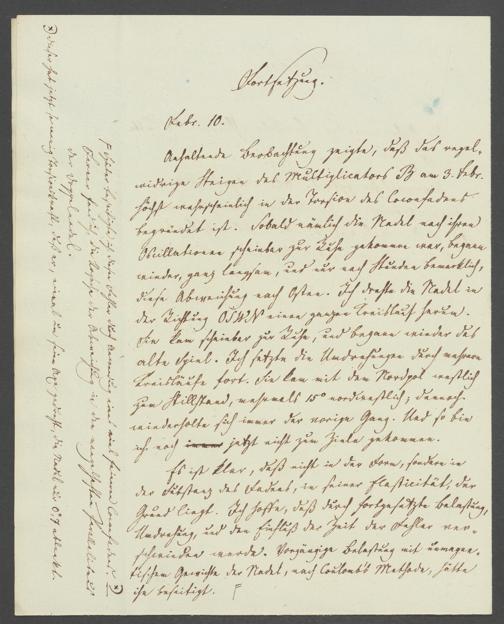 Fortsetzung.
Febr. 10.
Anhaltende Beobachtung zeigte, daß das regel-
widrige Steigen des Multiplicators B am 3. Febr.
höchst wahrscheinlich in der Torsion des Coconfadens
begründet ist. Sobald nämlich die Nadel nach ihren
Oscillationen scheinbar zur Ruhe gekommen war, begann
wieder, ganz langsam, und nur nach Stunden bemerklich,
diese Abweichung nach Osten. Ich drehte die Nadel in
der Richtung OSWN einen ganzen Kreislauf herum.
Sie kam scheinbar zur Ruhe, und begann wieder das
alte Spiel. Ich setzte die Umdrehungen durch mehrere
Kreisläufe fort. Sie kam mit dem Nordpol westlich
zum Stillstand, mehrmals 15° nordwestlich, dennoch
wiederholte sich immer der vorige Gang. Und so bin
ich noch immer jetzt nicht zum Ziele gekommen.
Es ist klar, daß nicht in der Form, sondern in
der Substanz des Fadens, in seiner Elasticität, der
Grund liegt. Ich hoffe, daß durch fortgesetzte Belastung,
Umdrehung, und den Einfluß der Zeit der Fehler ver-
schwinden werde. Vorgängige Belastung mit unmagne-
tischem Gewichte der Nadel, nach Coulomb's Methode, hätte
ihn beseitigt.